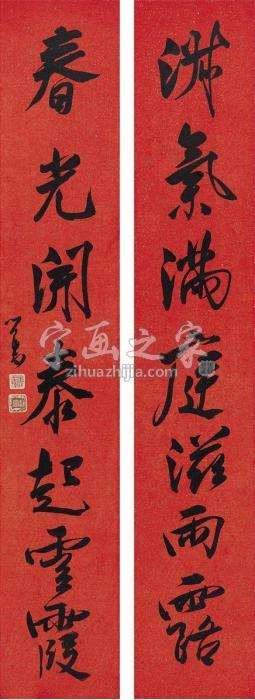 淑氣滿庭滋雨露
春光開泰起雲霞
溥儒
字画之家
zihuazhijia.com